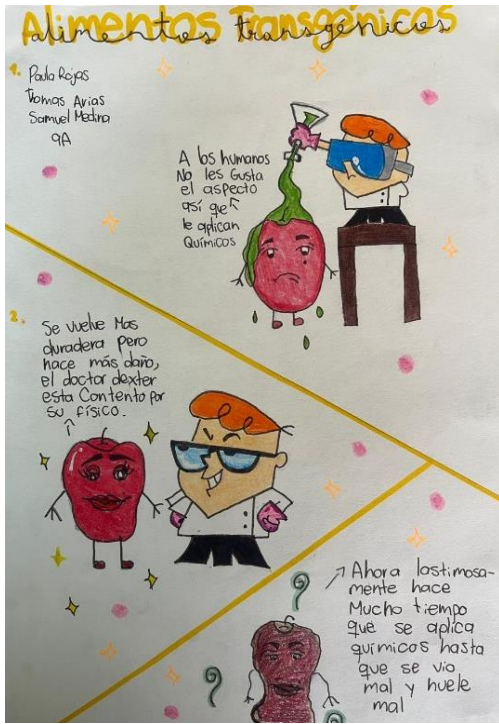 Alimentos Transgénicos
1.
Paula Rojas
Thomas Arias
Samuel Medina
9A
A los humanos
No les Gusta
el aspecto
así que
le aplican
Químicos
2.
Se vuelve Mas
duradera pero
hace más daño,
el doctor dexter
esta Contento por
su físico.
Ahora lastimosa-
mente hace
Mucho tiempo
que se aplica
químicos hasta
que se vio
mal y huele
mal